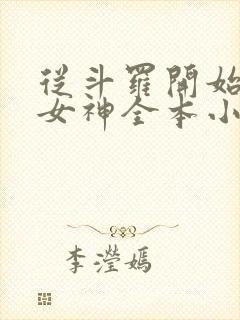 從斗羅開始
女神全本小
李瀅嫣